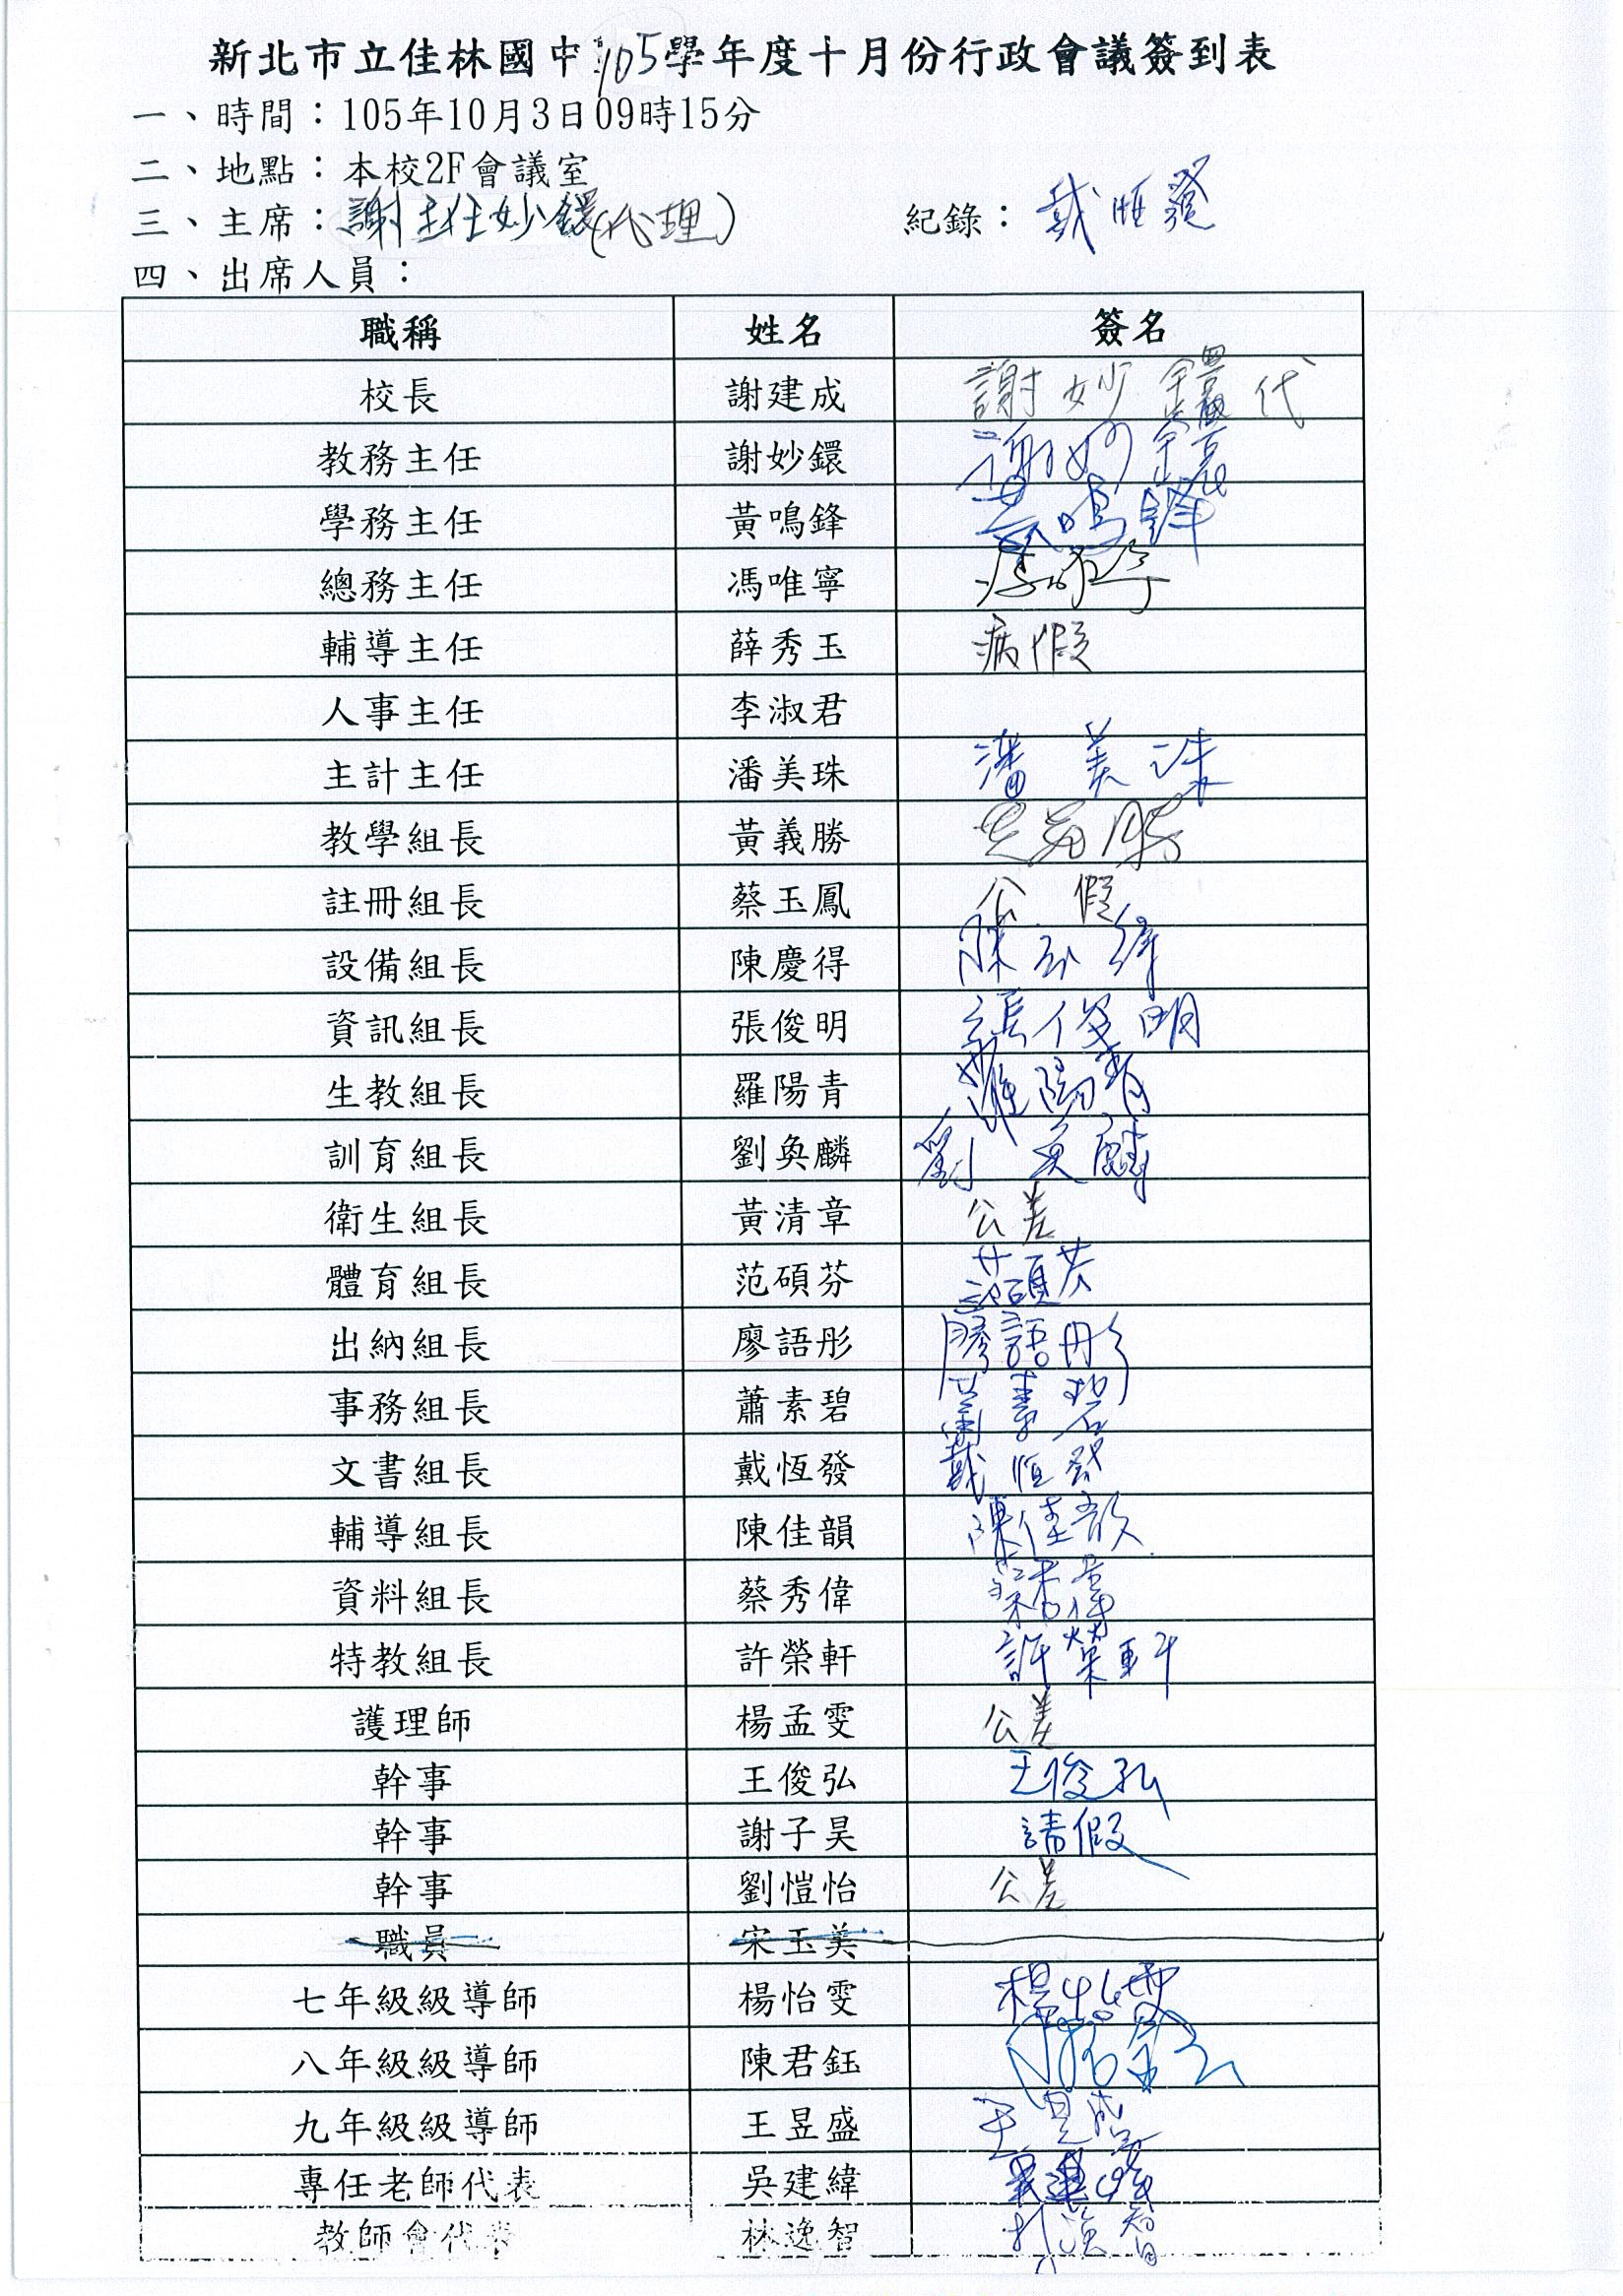 新北市立佳林國中105學年度十月份行政會議簽到表
一、時間：105年10月3日09時15分
二、地點：本校2F會議室
三、主席：謝主任妙鐶(代理) 紀錄：戴恆發
四、出席人員：
職稱 姓名 簽名
校長 謝建成 謝妙鐶代
教務主任 謝妙鐶 謝妙鐶
學務主任 黃鳴鋒 黃鳴鋒
總務主任 馮唯寧 馮唯寧
輔導主任 薛秀玉 病假
人事主任 李淑君
主計主任 潘美珠 潘美珠
教學組長 黃義勝 黃義勝
註冊組長 蔡玉鳳 公假
設備組長 陳慶得 陳
資訊組長 張俊明 張俊明
生教組長 羅陽青 羅陽青
訓育組長 劉奐麟 劉奐麟
衛生組長 黃清章 公差
體育組長 范碩芬 范碩芬
出納組長 廖語彤 廖語彤
事務組長 蕭素碧 蕭素碧
文書組長 戴恆發 戴恆發
輔導組長 陳佳韻 陳佳韻
資料組長 蔡秀偉 蔡秀偉
特教組長 許榮軒 許榮軒
護理師 楊孟雯 公差
幹事 王俊弘 王俊弘
幹事 謝子昊 請假
幹事 劉愷怡 公差
職員 宋玉美
七年級級導師 楊怡雯 楊怡雯
八年級級導師 陳君鈺 陳君鈺
九年級級導師 王昱盛 王昱盛
專任老師代表 吳建緯 吳建緯
教師會代表 林逸智 林逸智